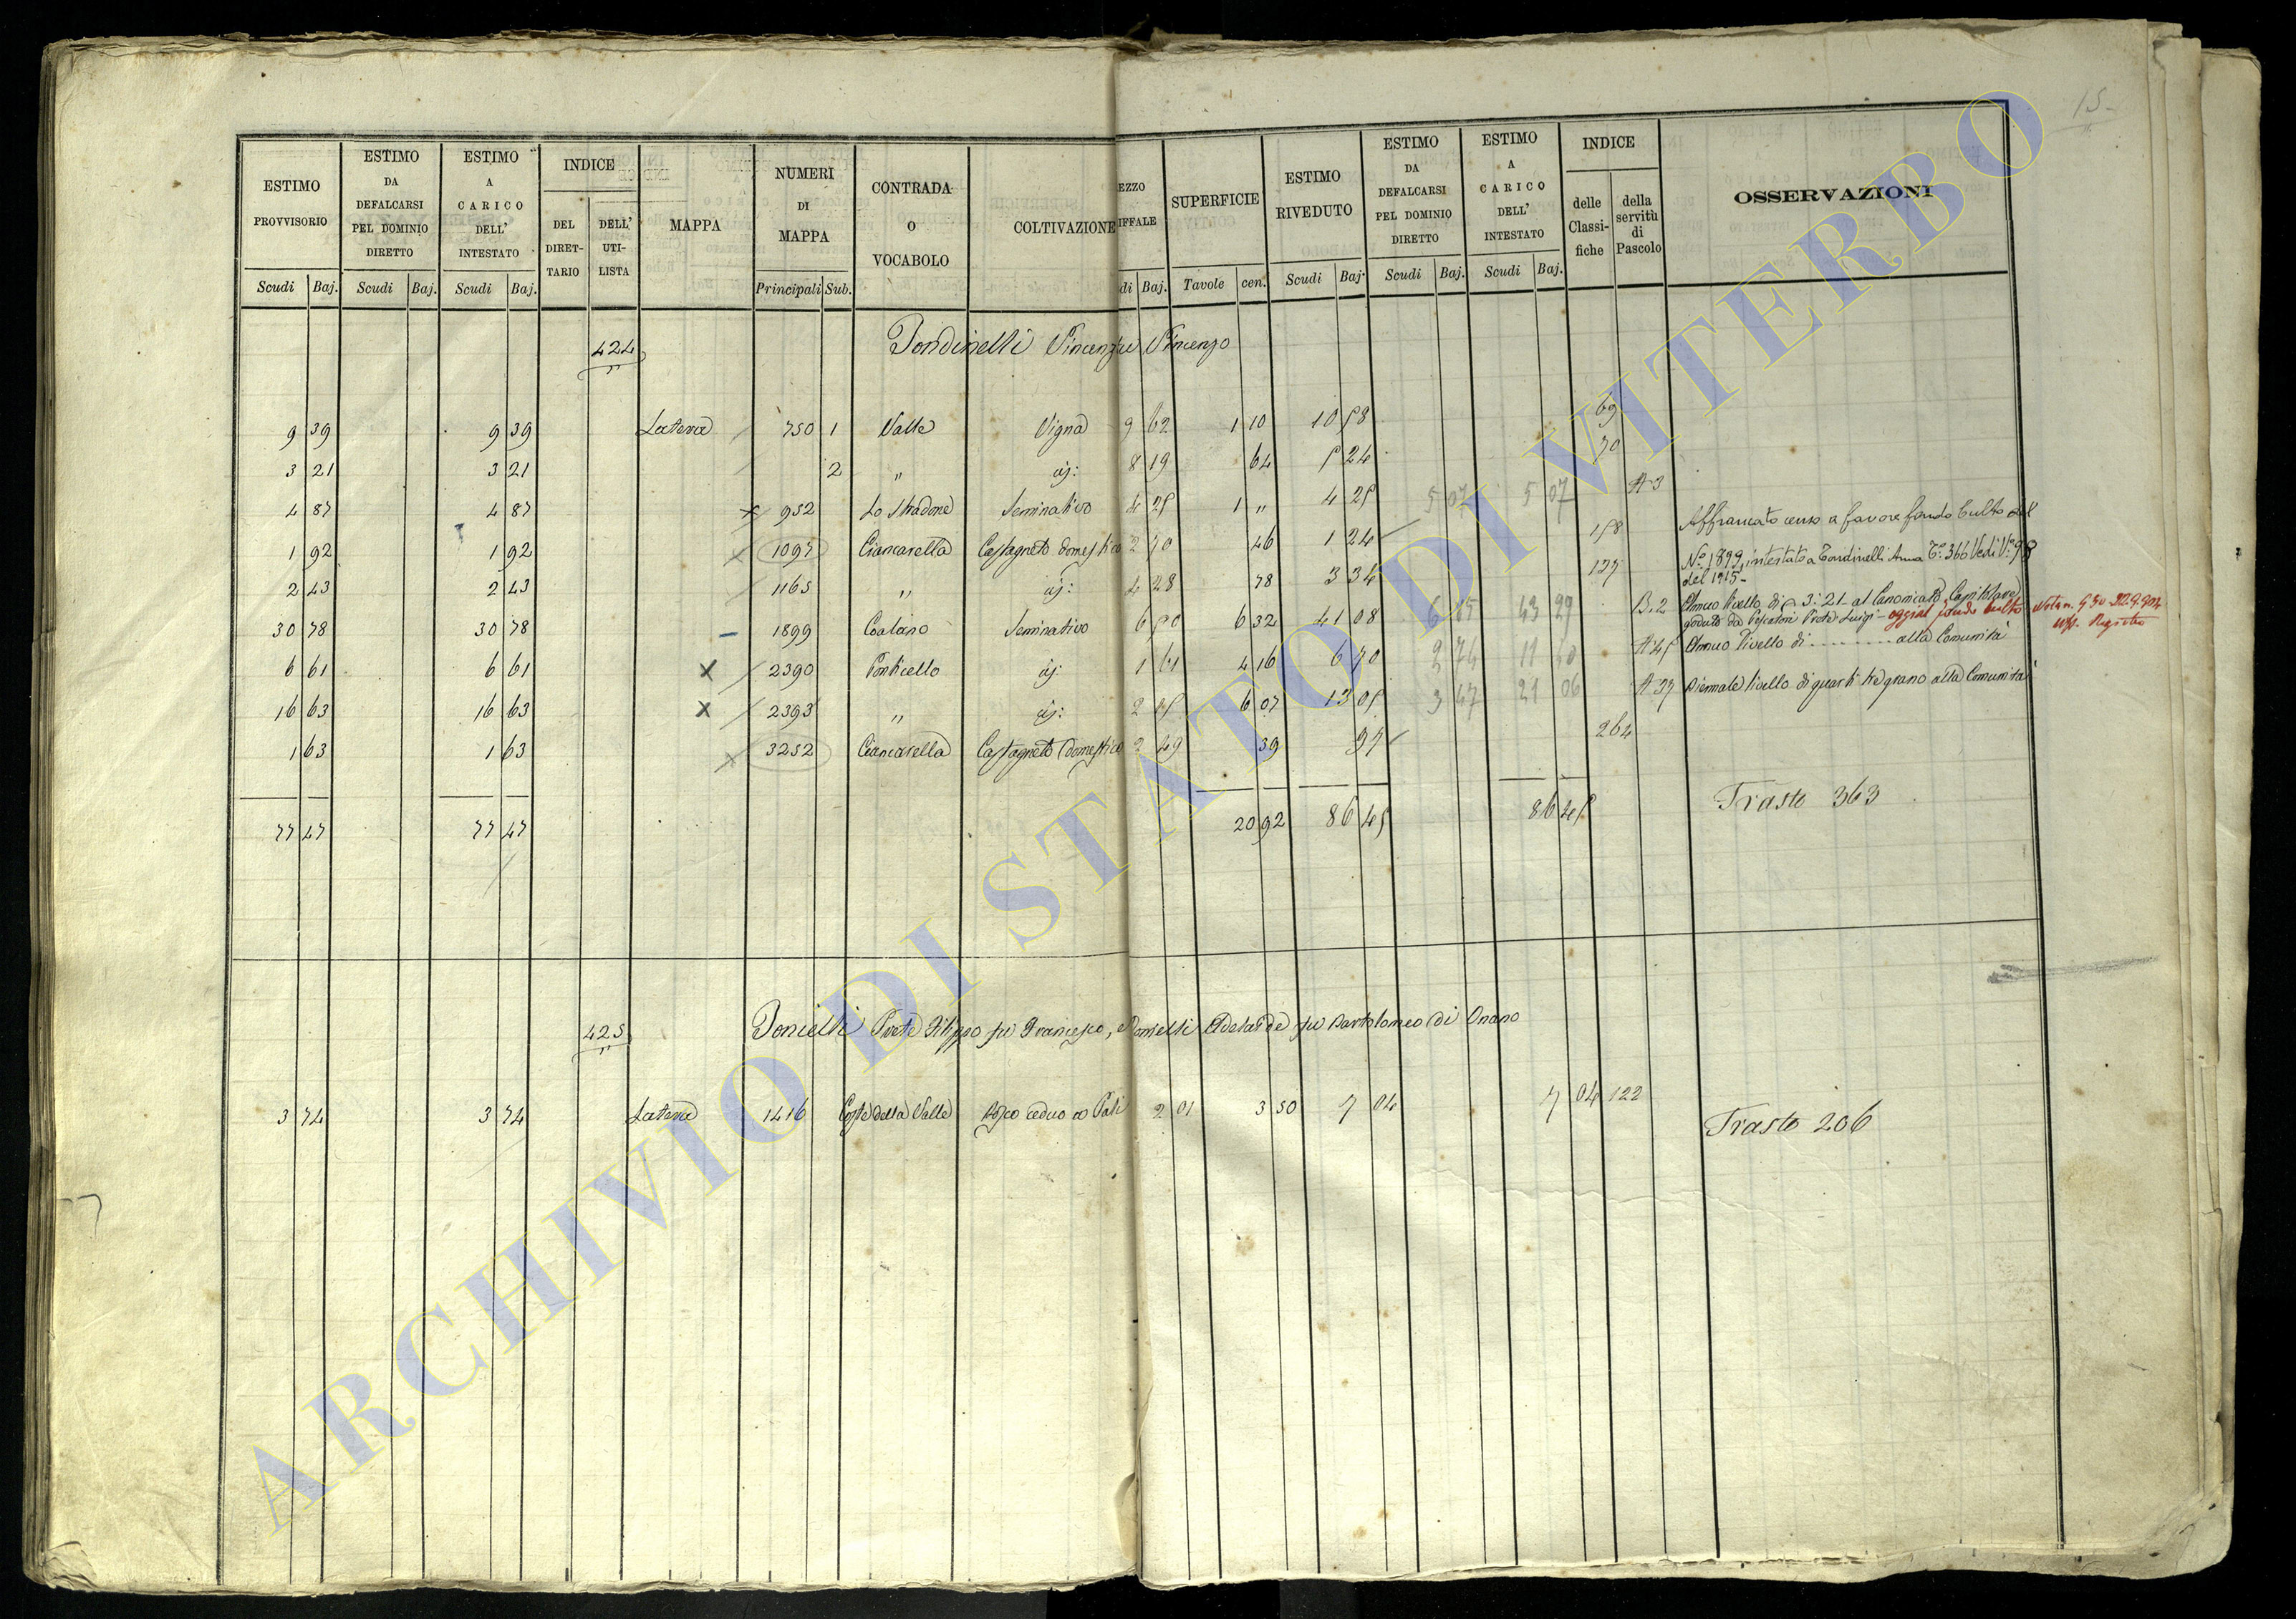 15-
ESTIMO PROVVISORIO Scudi Baj.
ESTIMO DA DEFALCARSI PEL DOMINIO DIRETTO Scudi Baj.
ESTIMO A CARICO DELL' INTESTATO Scudi Baj.
INDICE DEL DIRET-TARIO DELL' UTI-LISTA
MAPPA
NUMERI DI MAPPA Principali Sub.
CONTRADA O VOCABOLO
COLTIVAZIONE
EZZO IFFALE di Baj.
SUPERFICIE Tavole cen.
ESTIMO RIVEDUTO Scudi Baj.
ESTIMO DA DEFALCARSI PEL DOMINIO DIRETTO Scudi Baj.
ESTIMO A CARICO DELL' INTESTATO Scudi Baj.
INDICE delle Classi-fiche della servitù di Pascolo
OSSERVAZIONI
424 Tondinelli Vincenzo
9 39 9 39 Latera 750 1 Valle Vigna 9 62 1 10 10 58 69
3 21 3 21 2 " id: 8 19 64 5 24 70
4 87 4 87 x 952 Lo Stradone Seminativo 4 25 1 " 4 25 5 07 5 07 A 3
1 92 1 92 x 1097 Ciancarella Castagneto domestico 2 70 46 1 24 158 Affrancato censo a favore fondo Culto del
2 43 2 43 1165 " id: 4 28 78 3 34 177 N° 1899 intestato a Tondinelli Anna T° 366 Vedi V° 98
del 1915-
30 78 30 78 1899 Coalano Seminativo 6 50 6 32 41 08 6 15 43 29 B.2 Annuo livello di 3:21 al Canonicato Capitolare
goduto da Pescatori Prete Luigi - oggi al fondo culto
6 61 6 61 x 2390 Ponticello id: 1 61 4 16 6 70 2 74 11 40 A 45 Annuo livello di ........ alla Comunità
16 63 16 63 x 2393 " id: 2 15 6 07 13 05 3 47 21 06 A 37 Biennale livello di quarti tre grano alla Comunità
1 63 1 63 x 3252 Ciancarella Castagneto domestico 2 49 39 97 264
77 47 77 47 20 92 86 45 86 45 Trasto 363
425 Donielli Prete Filippo fu Francesco, e Adelaide fu Bartolomeo di Onano
3 74 3 74 Latera 1416 Coste della Valle Bosco ceduo da Pali 2 01 3 50 7 04 7 04 122
Trasto 206
ARCHIVIO DI STATO DI VITERBO